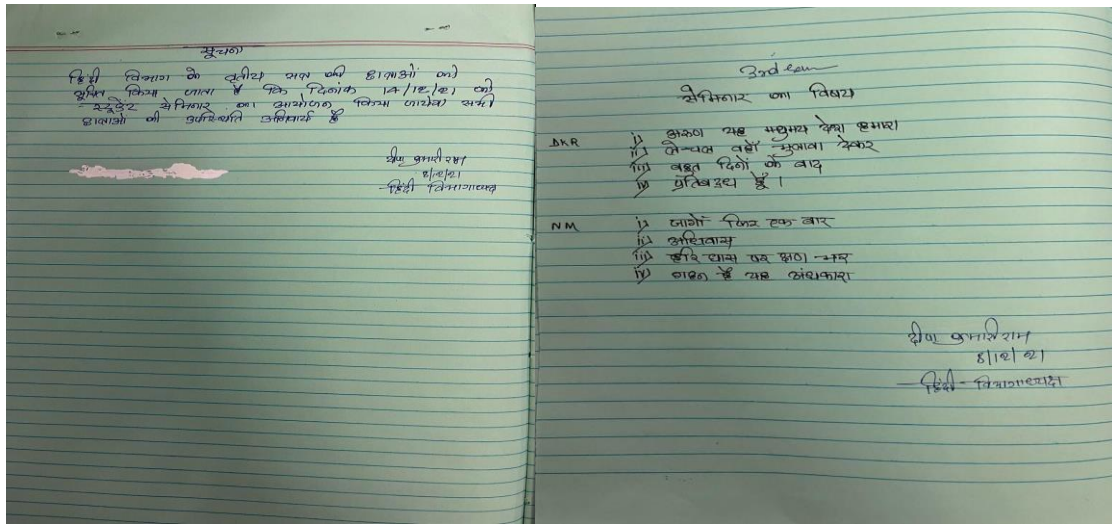 सूचना
हिंदी विभाग के तृतीय सत्र की छात्राओं को
सूचित किया जाता है कि दिनांक 14/12/21 को
स्टूडेंट सेमिनार का आयोजन किया जायेगा सभी
छात्राओं की उपस्थिति अनिवार्य है
कुमारी राम
8/12/21
हिंदी विभागाध्यक्ष
3rd sem
सेमिनार का विषय
DKR i) अरुण यह मधुमय देश हमारा
ii) ले चल वहाँ भुलावा देकर
iii) बहुत दिनों के बाद
iv) प्रतिबद्ध हूँ ।
NM i) जागो फिर एक बार
ii) अधिवास
iii) हरि घास पर क्षण भर
iv) गहन है यह अंधकारा
कुमारी राम
8/12/21
हिंदी - विभागाध्यक्ष